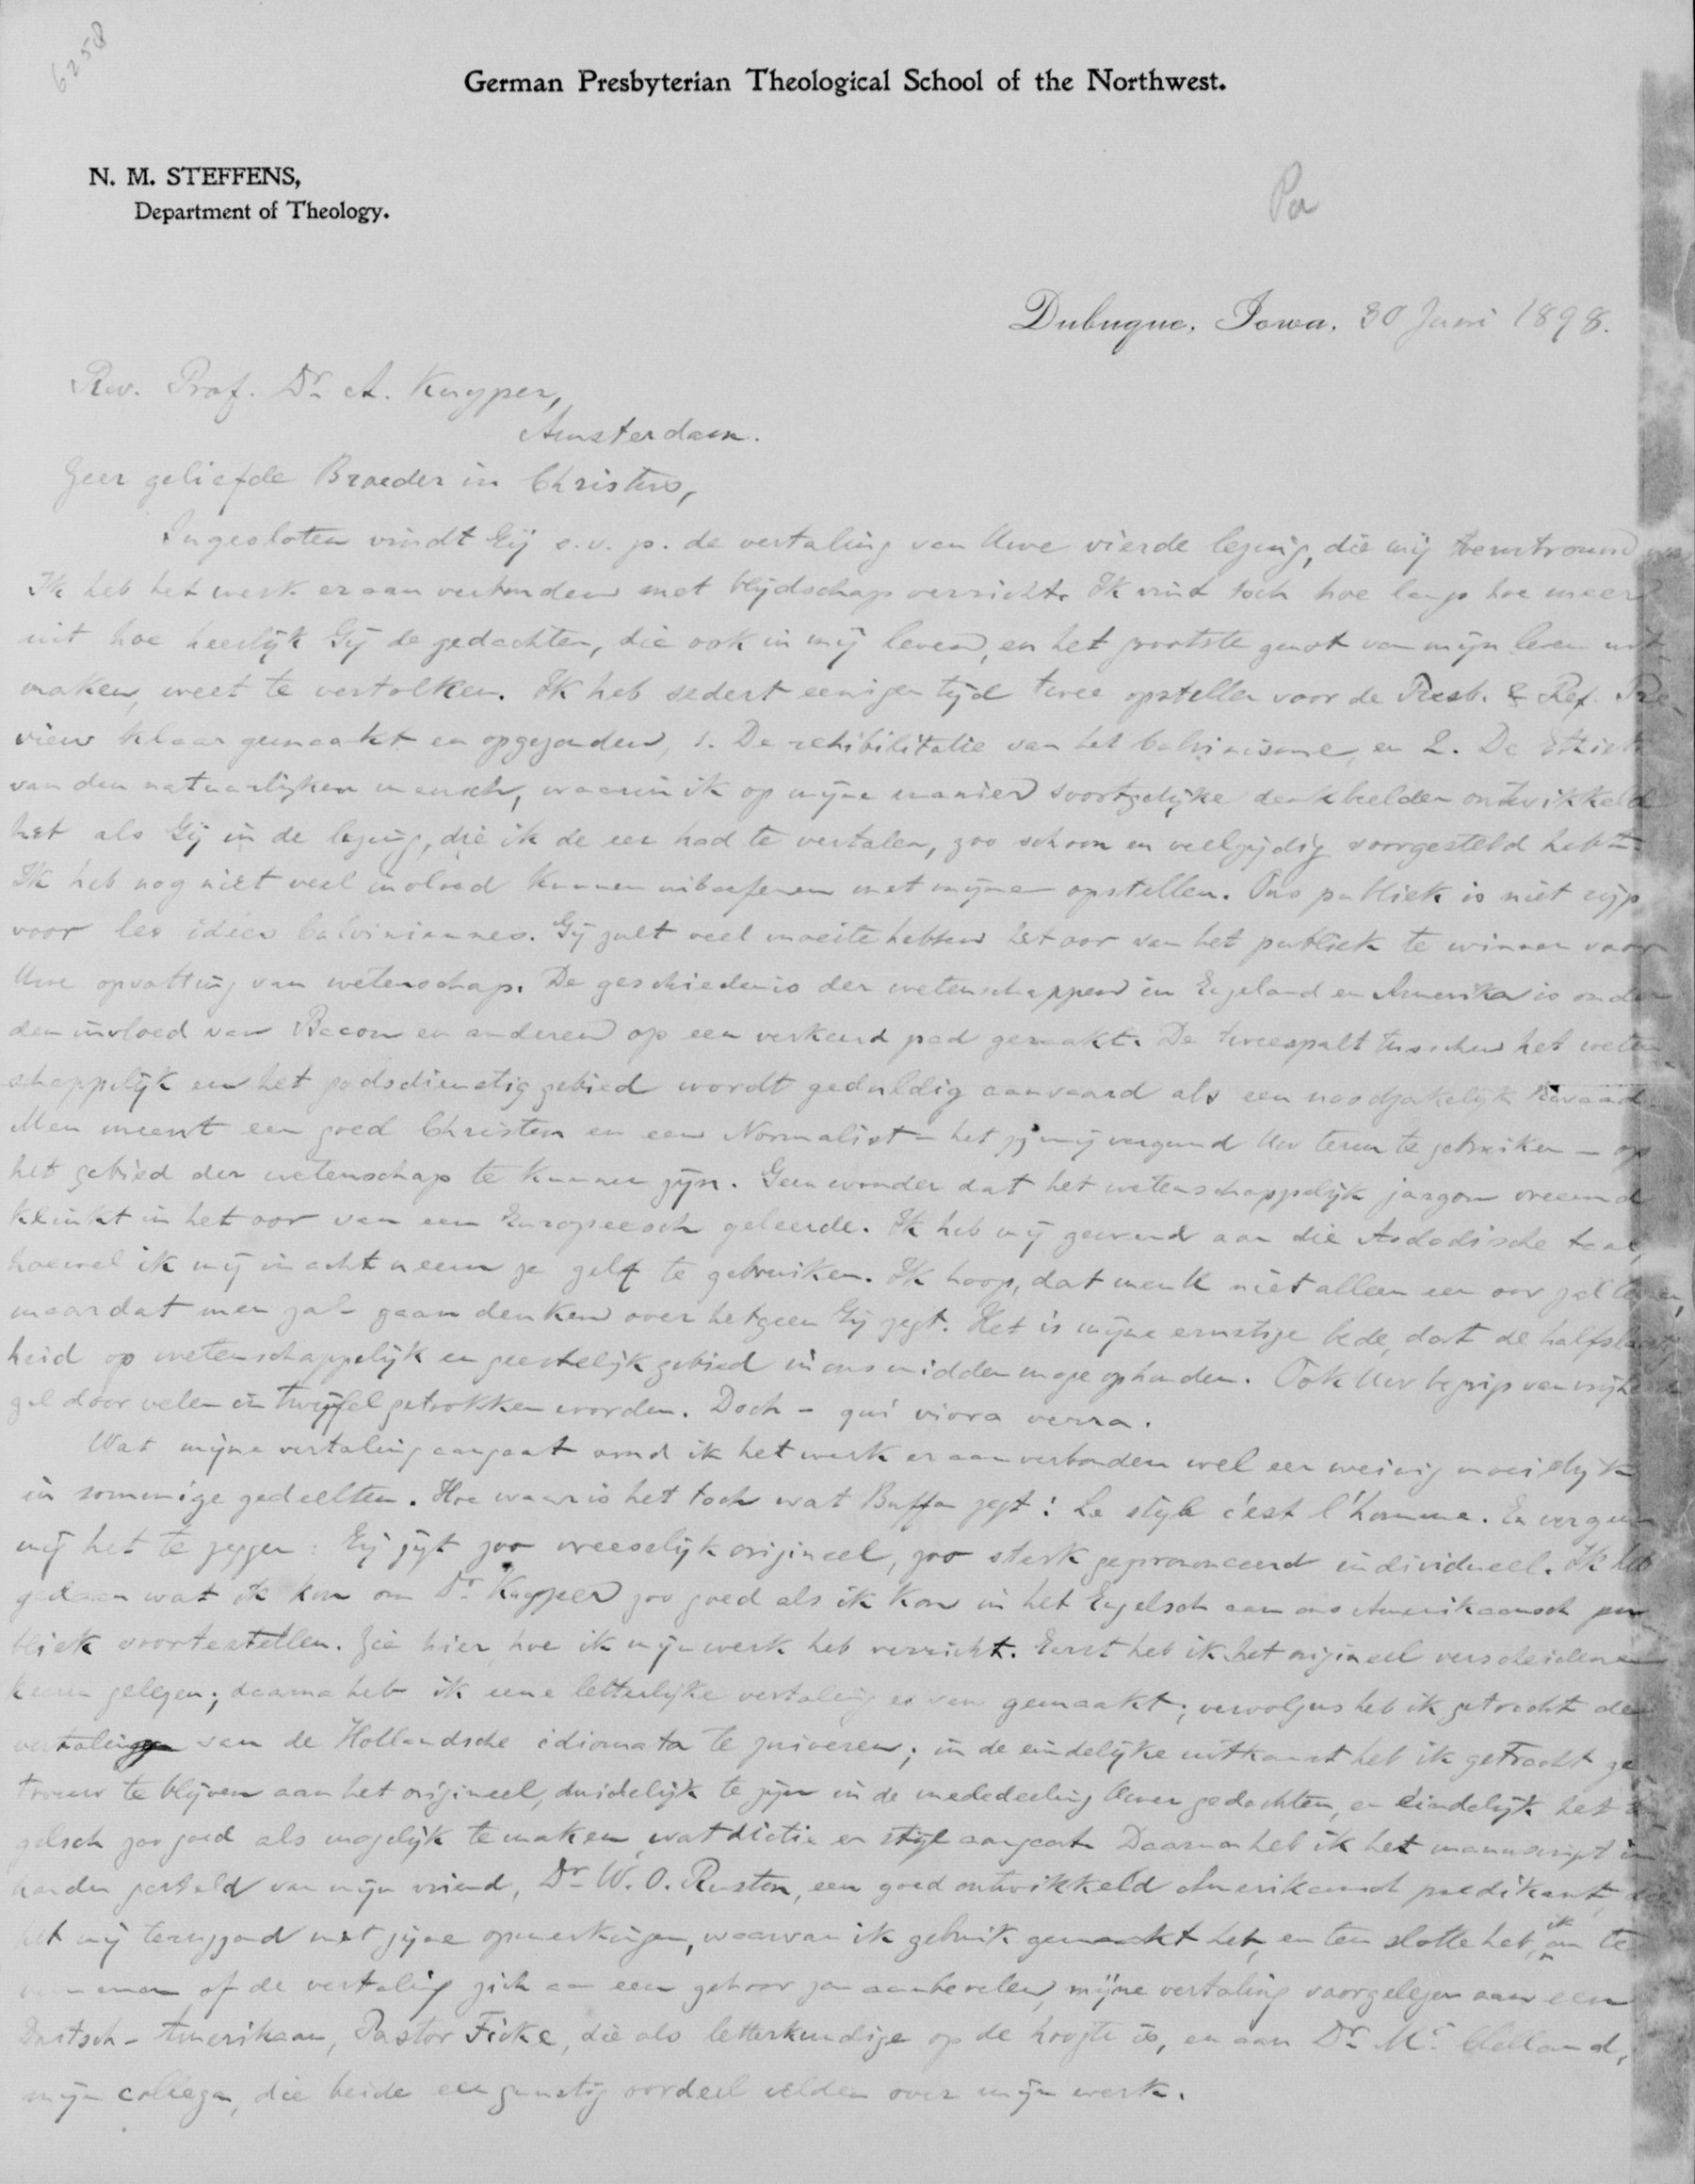 6258
German Presbyterian Theological School of the Northwest.
N. M. STEFFENS,
Department of Theology.
Pa
Dubuque, Iowa, 30 Juni 1898.
Rev. Prof. Dr. A. Kuyper,
Amsterdam.
Zeer geliefde Broeder in Christus,
Ingesloten vindt Gij s.v.p. de vertaling van Uwe vierde lezing, die mij toevertrouwd was
Ik heb het werk er aan verbonden met blijdschap verricht. Ik vind toch hoe langs hoe meer
uit hoe heerlijk Gij de gedachten, die ook in mij leven, en het grootste genot van mijn leven uit-
maken, weet te vertolken. Ik heb sedert eenigen tijd twee opstellen voor de Presb. & Ref. Re-
view klaar gemaakt en opgezonden, 1. De rehibilitatie van het Calvinisme, en 2. De Ethiek
van den natuurlijken mensch, waarin ik op mijne manier soortgelijke denkbeelden ontwikkeld
heb als Gij in de lezing, die ik de eer had te vertalen, zoo schoon en veelzijdig voorgesteld hebt.
Ik heb nog niet veel invloed kunnen uitoefenen met mijne opstellen. Ons publiek is niet rijp
voor les idées Calviniennes. Gij zult veel moeite hebben het oor van het publiek te winnen voor
Uwe opvatting van wetenschap. De geschiedenis der wetenschappen in Engeland en Amerika is onder
den invloed van Bacon en anderen op een verkeerd pad geraakt. De tweespalt tusschen het weten-
schappelijk en het godsdienstig gebied wordt geduldig aanvaard als een noodzakelijk kwaad.
Men meent een goed Christen en een Normalist – het zij mij vergund Uw term te gebruiken – op
het gebied der wetenschap te kunnen zijn. Geen wonder dat het wetenschappelijk jargon vreemd
klinkt in het oor van een Europeesch geleerde. Ik heb mij gewend aan die Asdodische taal,
hoewel ik mij in acht neem ze zelf te gebruiken. Ik hoop, dat men U niet alleen een oor zal leenen,
maar dat men zal gaan denken over hetgeen Gij zegt. Het is mijne ernstige bede, dat de halfslachtig-
heid op wetenschappelijk en geestelijk gebied in ons midden moge ophouden. Ook Uw begrip van vrijheid
zal door velen in twijfel getrokken worden. Doch – qui vivra verra.
Wat mijne vertaling aangaat vond ik het werk er aan verbonden wel een weinig moeielijk
in sommige gedeelten. Hoe waar is het toch wat Buffon zegt: Le style c'est l'homme. En vergun
mij het te zeggen: Gij zijt zoo vreeselijk origineel, zoo sterk geprononceerd individueel. Ik heb
gedaan wat ik kon om Dr. Kuyper zoo goed als ik kon in het Engelsch aan ons Amerikaansch pu-
bliek voortestellen. Zie hier, hoe ik mijn werk heb verricht. Eerst heb ik het origineel verscheidene
keeren gelezen; daarna heb ik eene letterlijke vertaling er van gemaakt; vervolgens heb ik getracht de
vertaling van de Hollandsche idiomata te zuiveren; in de eindelijke uitkomst heb ik getracht ge-
trouw te blijven aan het origineel, duidelijk te zijn in de mededeeling Uwer gedachten, en eindelijk het En-
gelsch zoo goed als mogelijk te maken, wat dictie en stijl aangaat. Daarna heb ik het manuscript in
handen gesteld van mijn vriend, Dr. W. O. Ruston, een goed ontwikkeld Amerikaansch predikant, die
het mij teruggaf met zijne opmerkingen, waarvan ik gebruik gemaakt heb, en ten slotte heb ik om te
vernemen of de vertaling zich aan een gehoor zou aanbevelen, mijne vertaling voorgelezen aan een
Duitsch-Amerikaan, Pastor Ficke, die als letterkundige op de hoogte is, en aan Dr. Mc. Clelland,
mijn collega, die beide een gunstig oordeel velden over mijn werk.